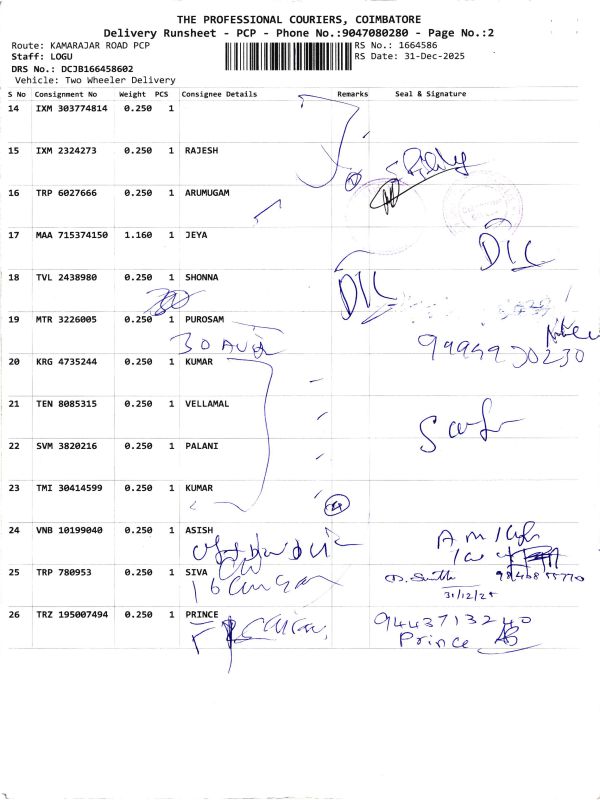 THE PROFESSIONAL COURIERS, COIMBATORE
Delivery Runsheet - PCP - Phone No.:9047080280 - Page No.:2
Route: KAMARAJAR ROAD PCP RS No.: 1664586
Staff: LOGU RS Date: 31-Dec-2025
DRS No.: DCJB166458602
Vehicle: Two Wheeler Delivery
S No Consignment No Weight PCS Consignee Details Remarks Seal & Signature
14 IXM 303774814 0.250 1
15 IXM 2324273 0.250 1 RAJESH
16 TRP 6027666 0.250 1 ARUMUGAM
17 MAA 715374150 1.160 1 JEYA
DIL
18 TVL 2438980 0.250 1 SHONNA
DIL
19 MTR 3226005 0.250 1 PUROSAM
20 KRG 4735244 0.250 1 KUMAR
21 TEN 8085315 0.250 1 VELLAMAL
22 SVM 3820216 0.250 1 PALANI
23 TMI 30414599 0.250 1 KUMAR
24 VNB 10199040 0.250 1 ASISH
25 TRP 780953 0.250 1 SIVA
31/12/25
26 TRZ 195007494 0.250 1 PRINCE
9443713240
Prince